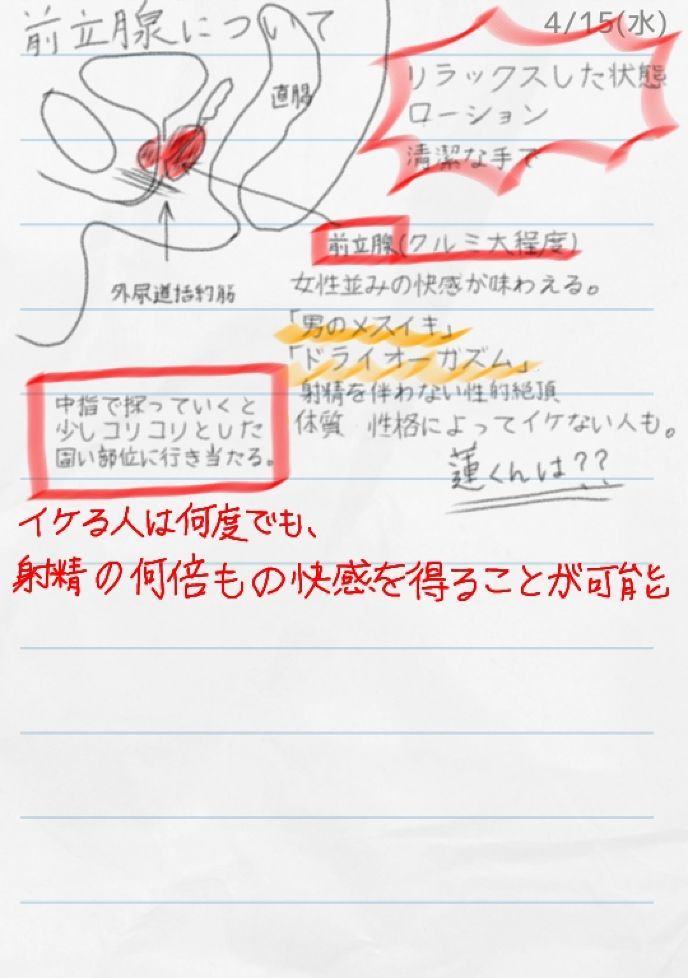 前立腺について
4/15(水)
リラックスした状態
ローション
清潔な手で
直腸
前立腺(クルミ大程度)
外尿道括約筋
女性並みの快感が味わえる。
「男のメスイキ」
「ドライオーガズム」
射精を伴わない性的絶頂
体質 性格によってイケない人も。
蓮くんは??
中指で探っていくと
少しコリコリとした
固い部位に行き当たる。
イケる人は何度でも、
射精の何倍もの快感を得ることが可能